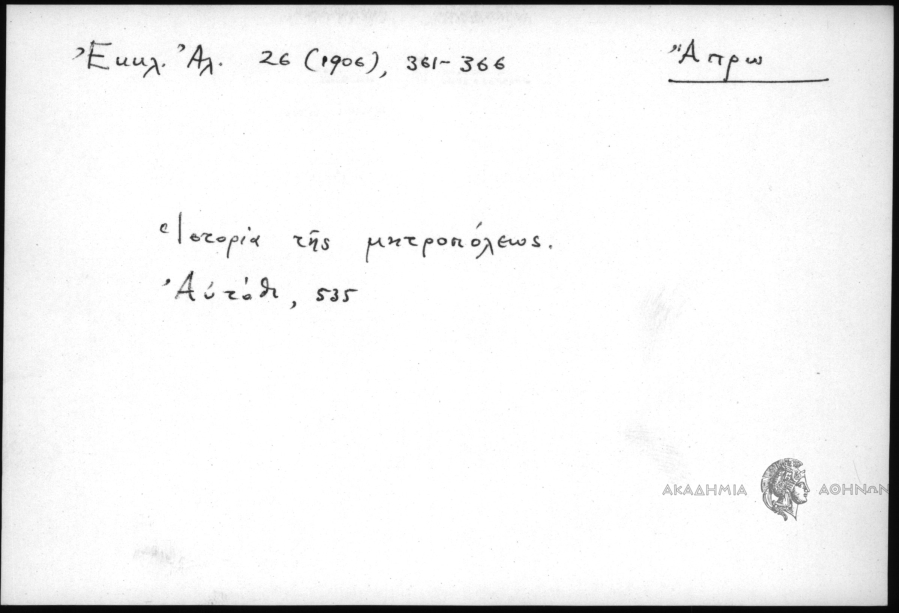 Ἐκκλ. Ἀλ. 26 (1906), 361-366
Ἄπρω
Ἱστορία τῆς μητροπόλεως.
Αὐτόθι, 535
ΑΚΑΔΗΜΙΑ ΑΘΗΝΩΝ